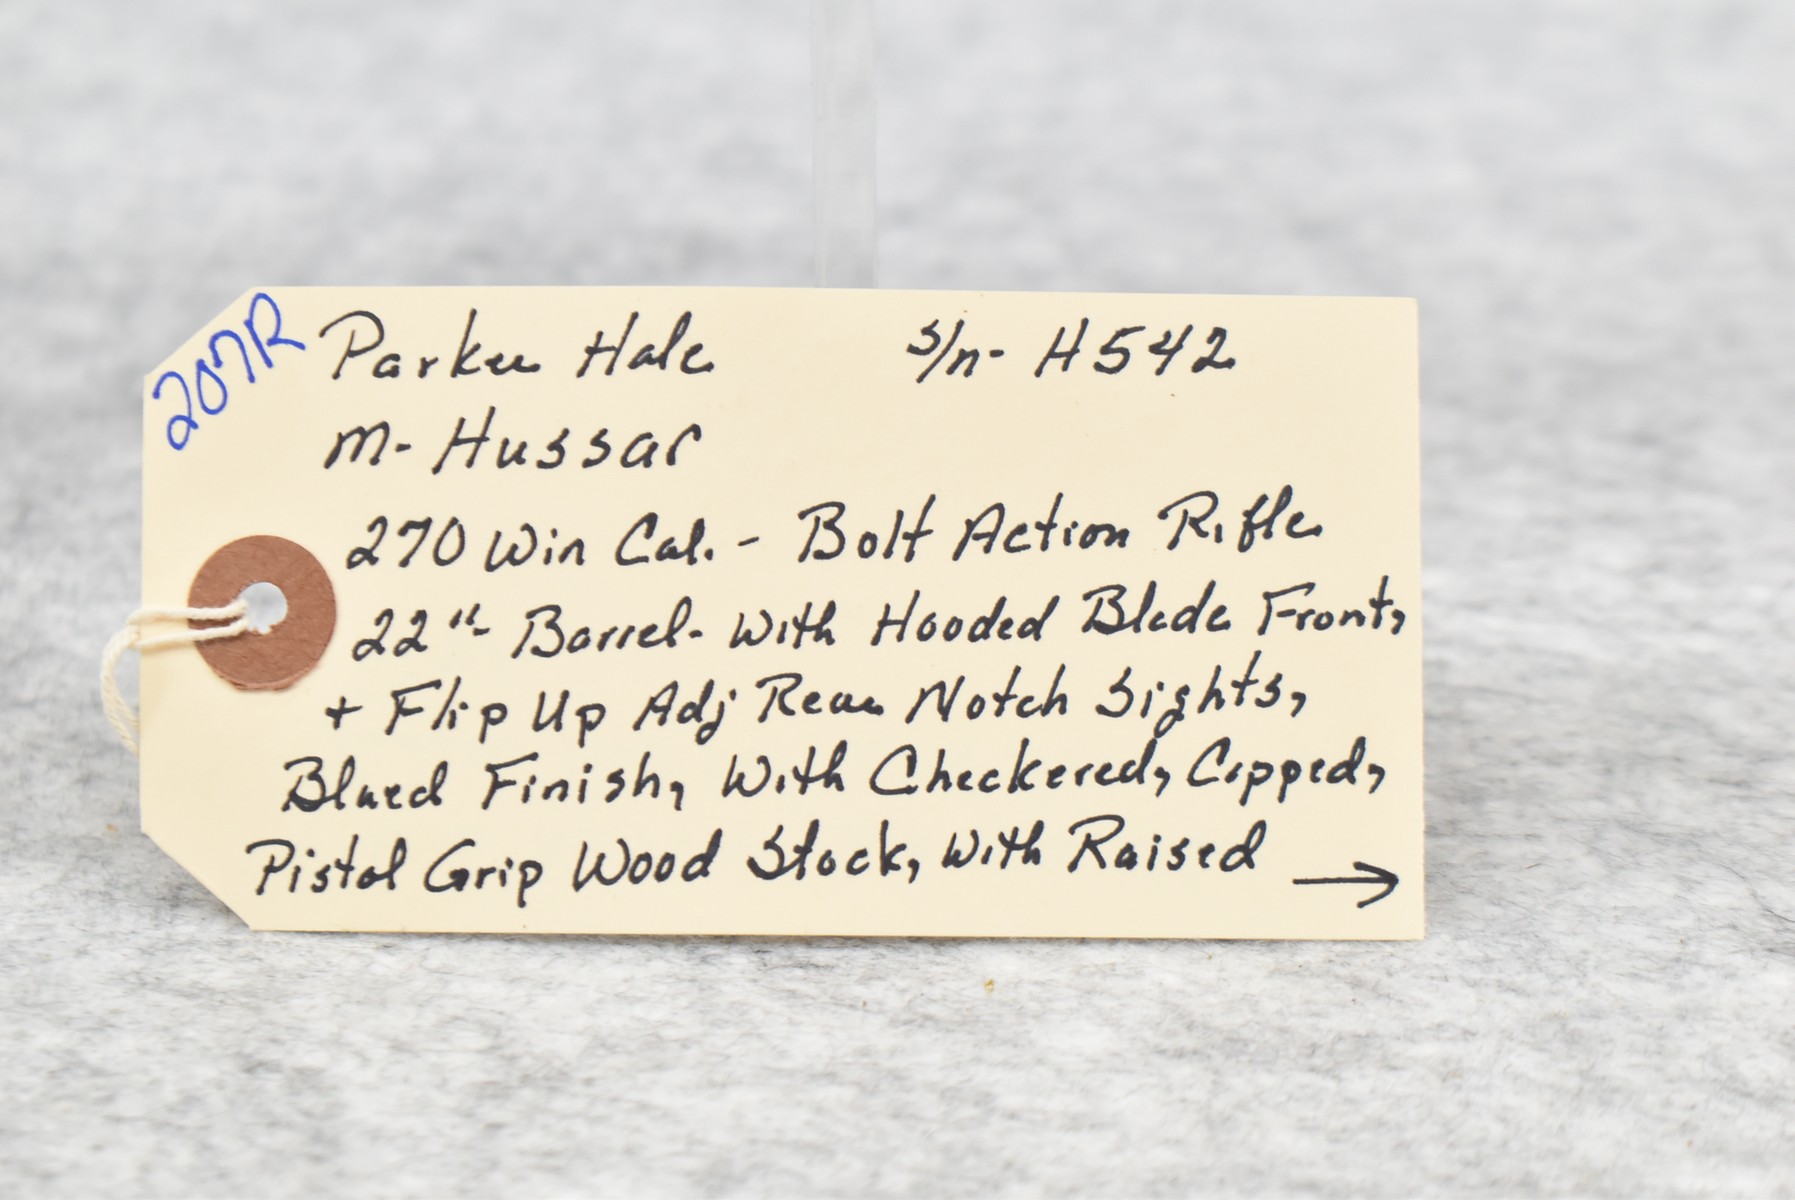 207R
Parker Hale s/n- H542
M- Hussar
270 Win Cal. - Bolt Action Rifle
22"- Barrel- With Hooded Blade Front,
+ Flip Up Adj Rear Notch Sights,
Blued Finish, With Checkered, Capped,
Pistol Grip Wood Stock, With Raised →